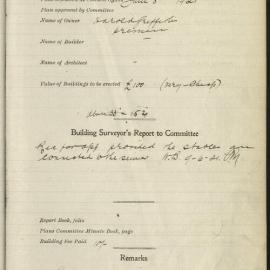 Plan approved by Committee
Name of Owner Harold Griffiths
premises
Name of Builder
Name of Architect -
Value of Buildings to be erected £100 (very cheap)
Building Surveyor's Report to Committee
Rec for app provided the stables are
connected to the sewer
Report Book, folio
Plans Committee Minute Book, page
Building Fee Paid 10/-
Remarks